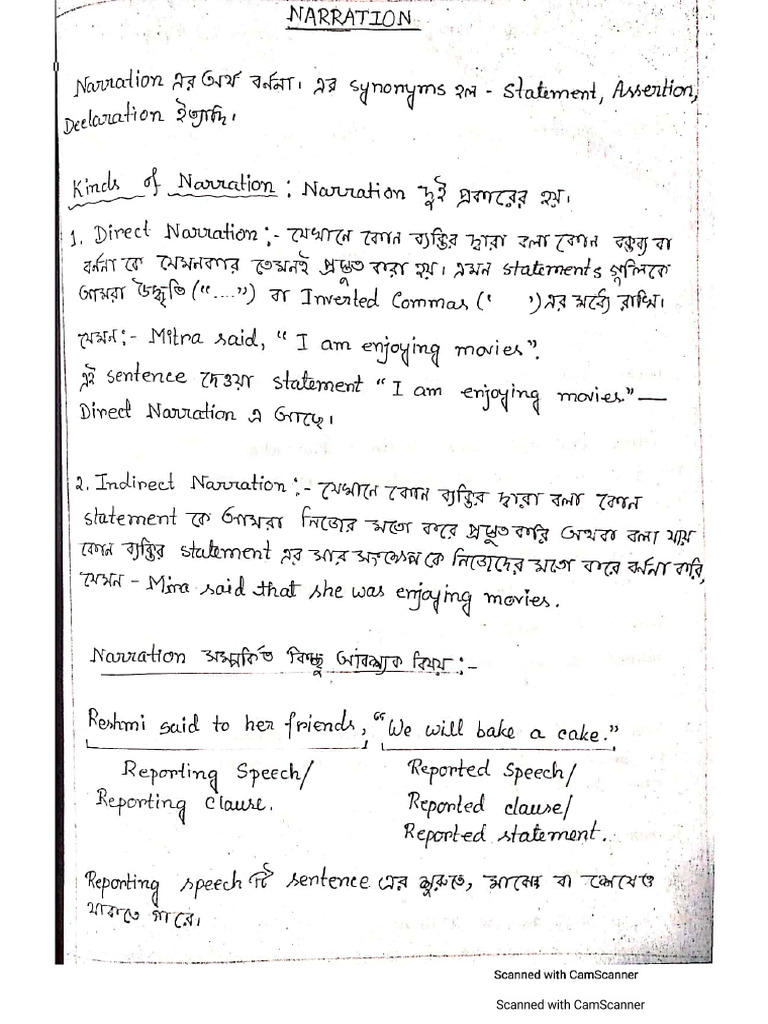 NARRATION
Narration এর অর্থ বর্ননা। এর synonyms হল - Statement, Assertion,
Declaration ইত্যাদি।
Kinds of Narration : Narration দুই প্রকারের হয়।
1. Direct Narration :- যেখানে কোন ব্যক্তির দ্বারা বলা কোন বক্তব্য বা
বর্ননা কে যেমনকার তেমনই প্রস্তুত করা হয়। এমন statements গুলিকে
আমরা উদ্ধৃতি ("....") বা Inverted Commas (' ') এর মধ্যে রাখি।
যেমন :- Mitra said, "I am enjoying movies".
এই sentence দেওয়া statement "I am enjoying movies" —
Direct Narration এ আছে।
2. Indirect Narration :- যেখানে কোন ব্যক্তির দ্বারা বলা কোন
statement কে আমরা নিজের মতো করে প্রস্তুত করি অথবা বলা যায়
কোন ব্যক্তির statement এর সার সংক্ষেপ কে নিজেদের মতো করে বর্ননা করি,
যেমন - Mira said that she was enjoying movies.
Narration সম্পর্কিত কিছু আবশ্যক বিষয় :-
Reshmi said to her friends, "We will bake a cake."
Reporting Speech/ Reported Speech/
Reporting clause. Reported clause/
Reported statement.
Reporting speech টি sentence এর শুরুতে, মাঝে বা শেষেও
থাকতে পারে।
Scanned with CamScanner
Scanned with CamScanner